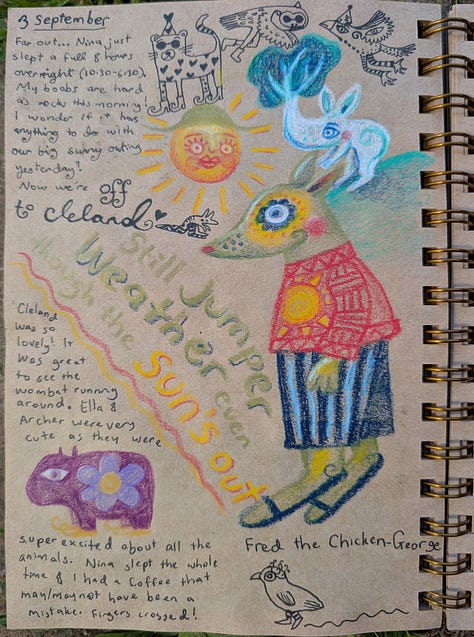 3 September
Far out... Nina just
slept a full 8 hours
overnight (10:30-6:30).
My boobs are hard
as rocks this morning!
I wonder if it has
anything to do with
our big sunny outing
yesterday?
Now we're off
to cleland
Still Jumper
Weather even
though the sun's out
Cleland
was so
lovely! It
was great
to see the
wombat running
around. Ella &
Archer were very
cute as they were
super excited about all the
animals. Nina slept the whole
time & I had a coffee that
may/may not have been a
mistake. Fingers crossed!
Fred the Chicken-George